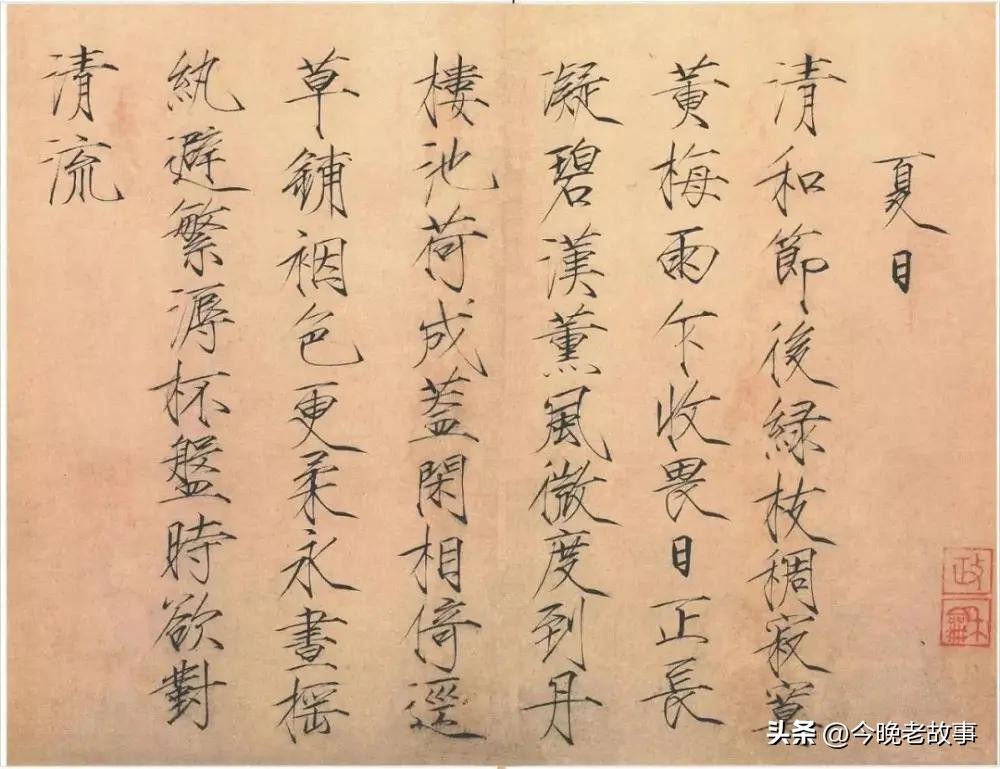 夏日
清和節後緑枝稠寂寞
黄梅雨乍收畏日正長
凝碧漢薰風微度到丹
樓池荷成蓋閑相倚逕
草鋪裀色更柔永晝揺
紈避繁溽杯盤時欲對
清流
政龢
头条 @今晚老故事